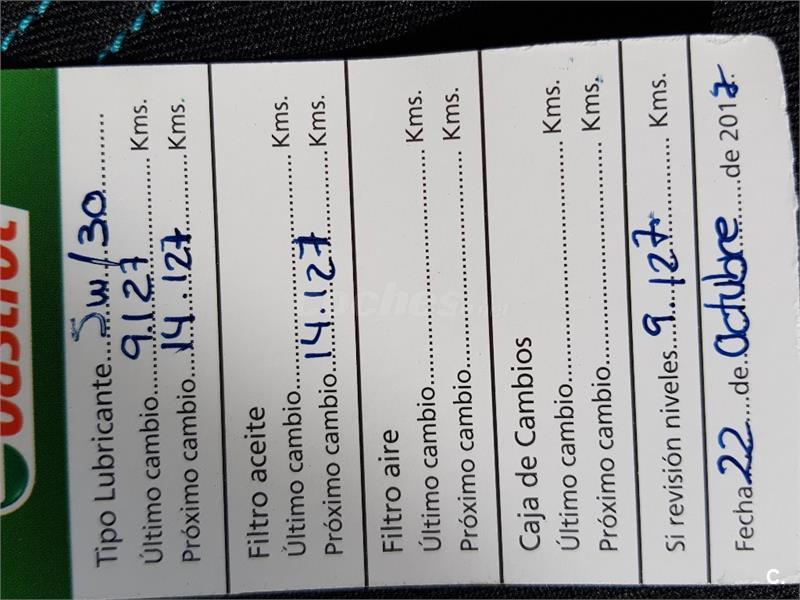 Castrol
Tipo Lubricante 5w/30
Último cambio 9.127 Kms.
Próximo cambio 14.127 Kms.
Filtro aceite
Último cambio Kms.
Próximo cambio 14.127 Kms.
Filtro aire
Último cambio Kms.
Próximo cambio Kms.
Caja de Cambios
Último cambio Kms.
Próximo cambio Kms.
Si revisión niveles 9.127 Kms.
Fecha 22 de Octubre de 2017.
coches.net
c.